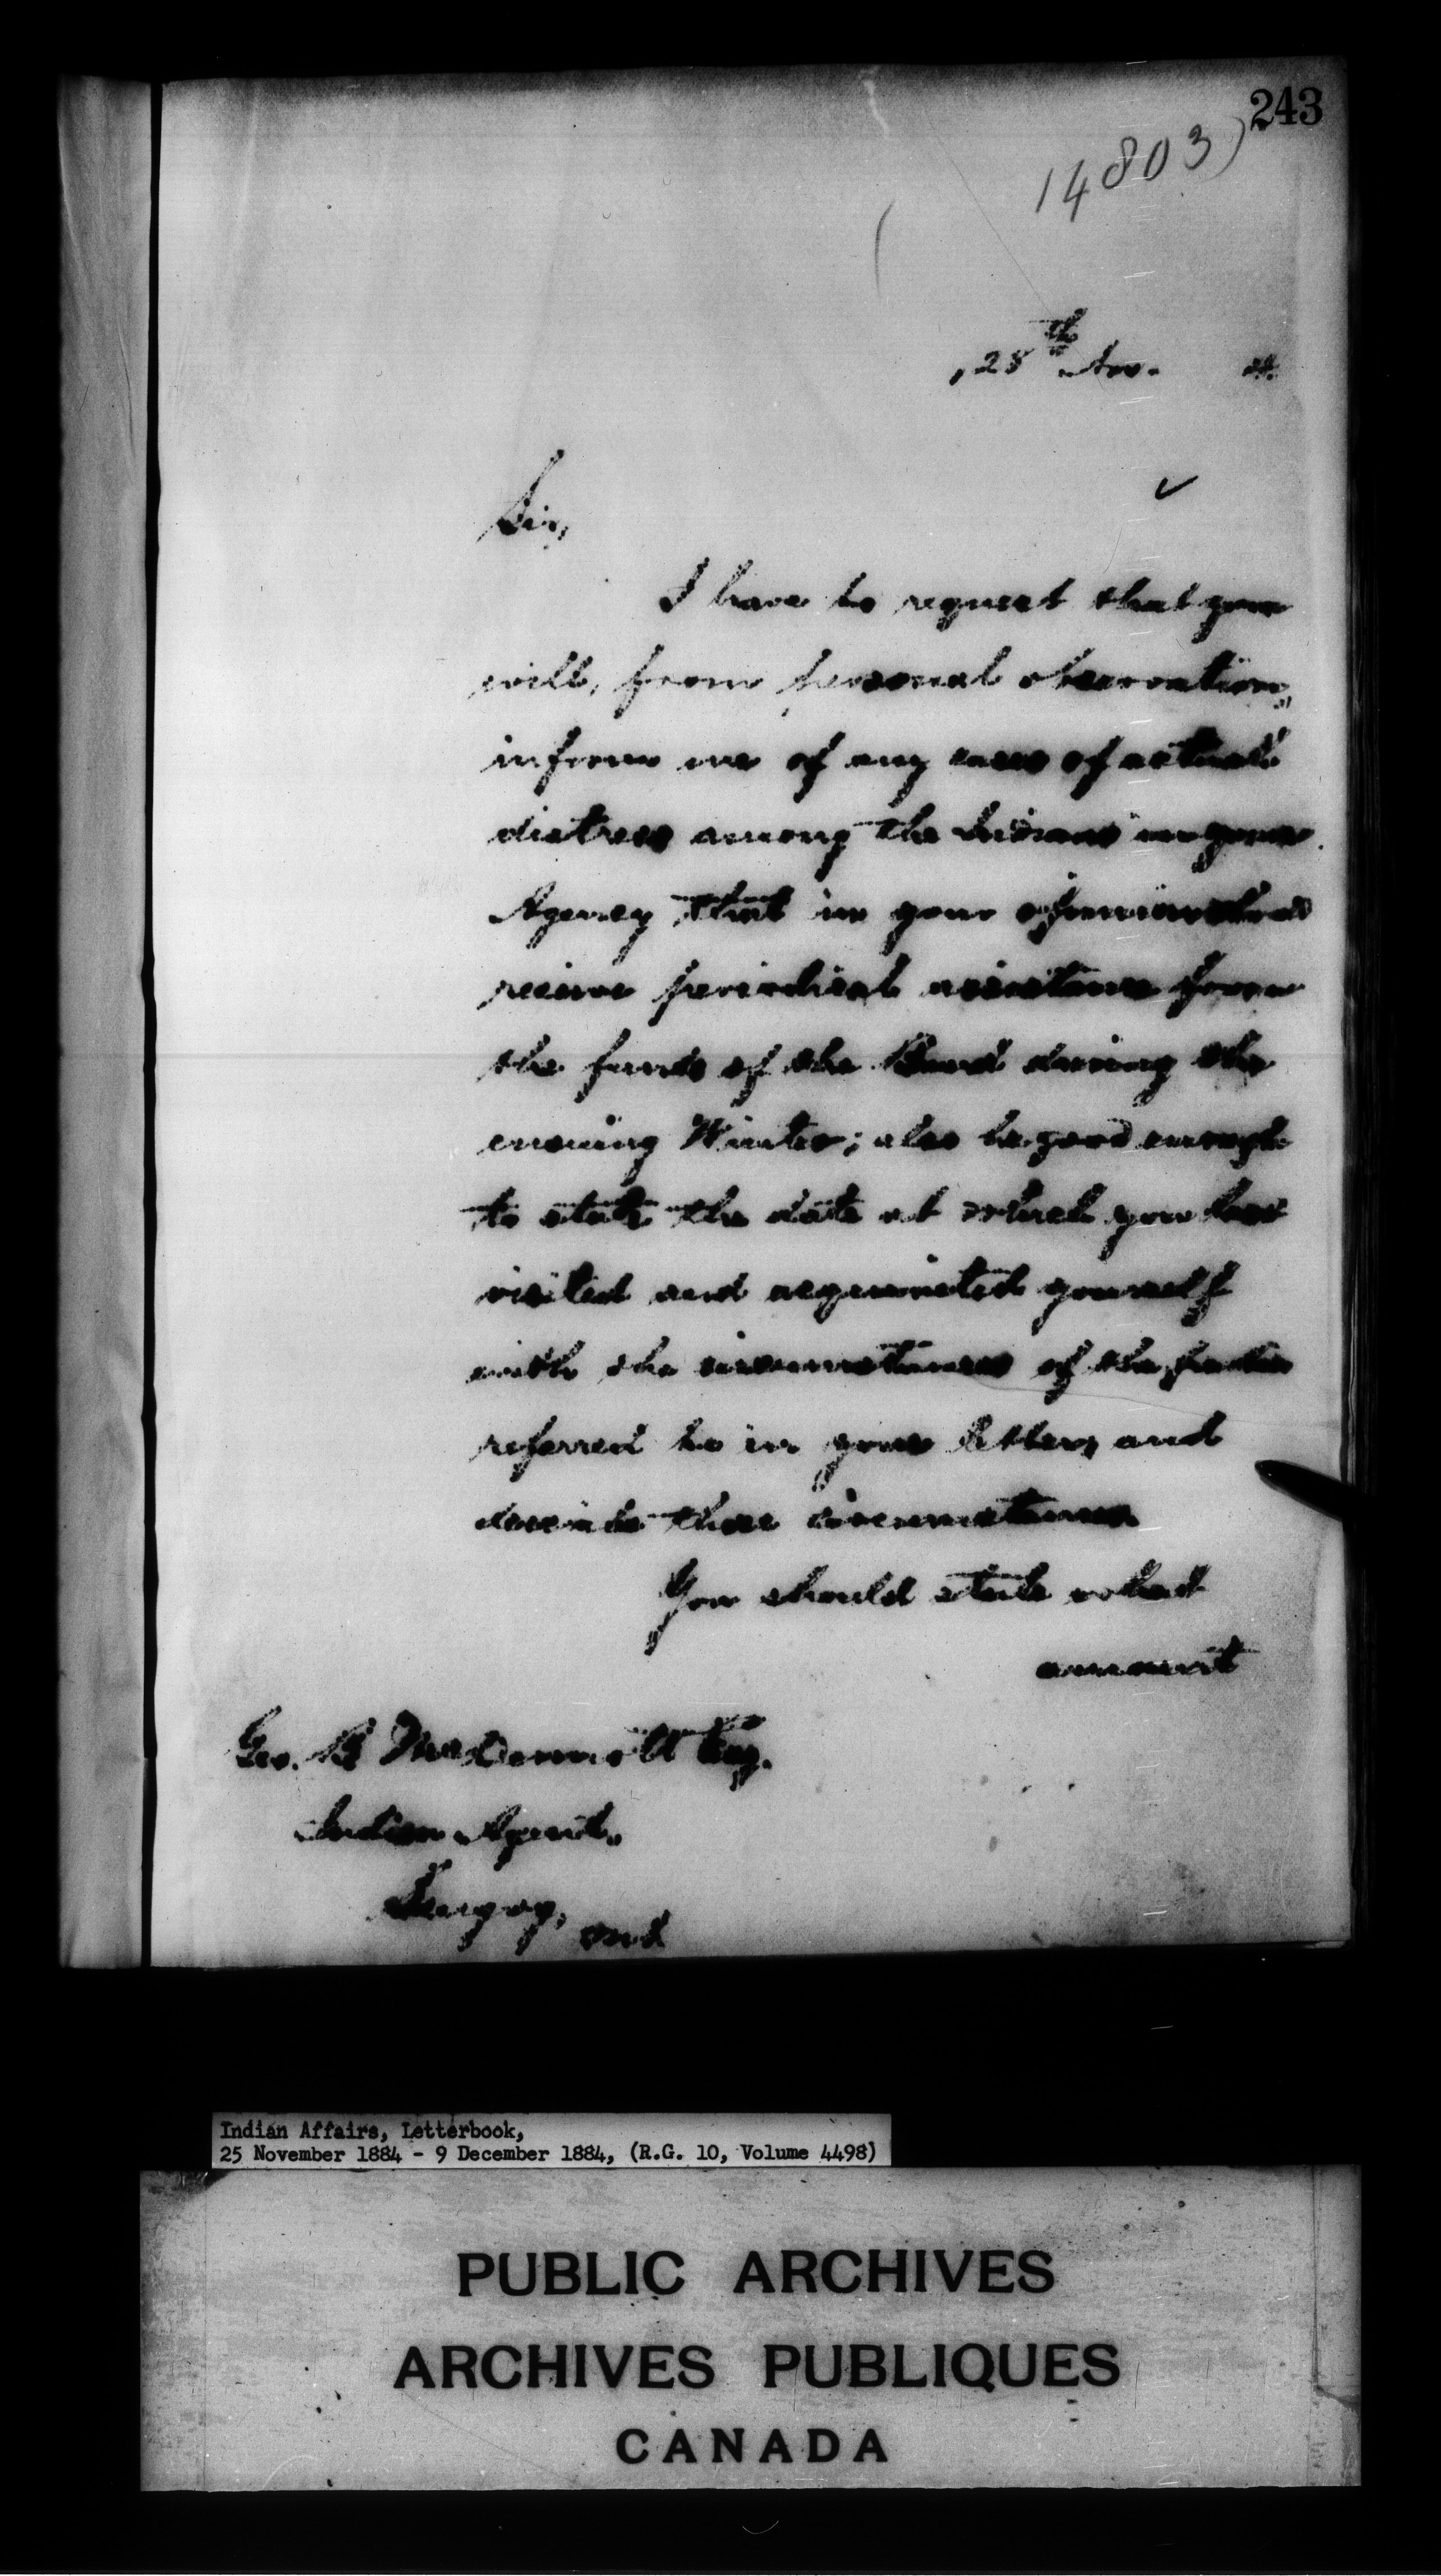 243
14803)
28th Nov. 84
Sir,
I have to request that you
will, from personal observation,
inform me of any cases of actual
distress among the Indians in your
Agency that in your opinion should
receive periodical assistance from
the funds of the Band during the
ensuing Winter; also be good enough
to state the date at which you last
visited and acquainted yourself
with the circumstances of the parties
referred to in your letter, and
describe those circumstances
You should state what
amount
Geo. B McDermott Esq.
Indian Agent,
Scugog, Ont
Indian Affairs, Letterbook,
25 November 1884 - 9 December 1884, (R.G. 10, Volume 4498)
PUBLIC ARCHIVES
ARCHIVES PUBLIQUES
CANADA